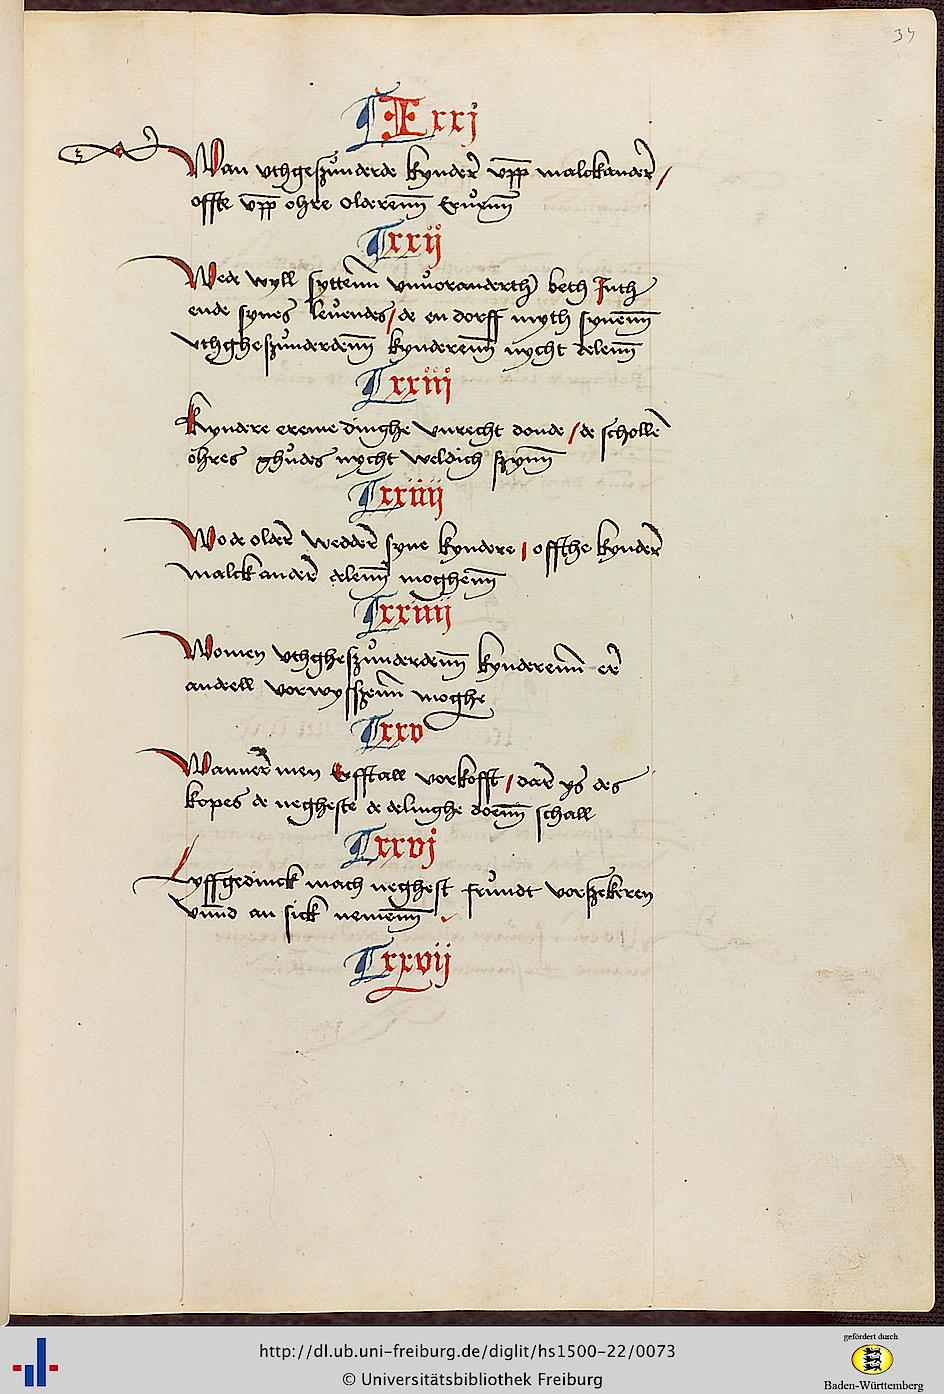 37
E xxj
Wan vthgeszůnderde kynder vpp malckander /
offte vpp ohre olderenn eruenn
xxij
Wede wyll syttenn vnůoranderth beth Inth
ende synes leůendes / de en dorff myth synenn
vthgheszůnderdenn kynderenn nycht delenn
xxiij
Kyndere ereme dinghe vnrecht donde / de schollen
ohres ghůdes nycht weldich szynn
xxiiij
Wo de older wedder syne kyndere / offthe kynder
malckander delenn moghenn
xxiiiij
Women vthgheszůnderdenn kynderenn er
andell vorwyszenn moghe
xxv
Wanner men erfftall vorkofft / dar ys des
kopes de negheste de delinghe doenn schall
xxvj
Lyffgedinck mach neghest frůndt vorszekeren
vnnd an sick nemenn
xxvij
http://dl.ub.uni-freiburg.de/diglit/hs1500-22/0073
© Universitätsbibliothek Freiburg
gefördert durch
Baden-Württemberg